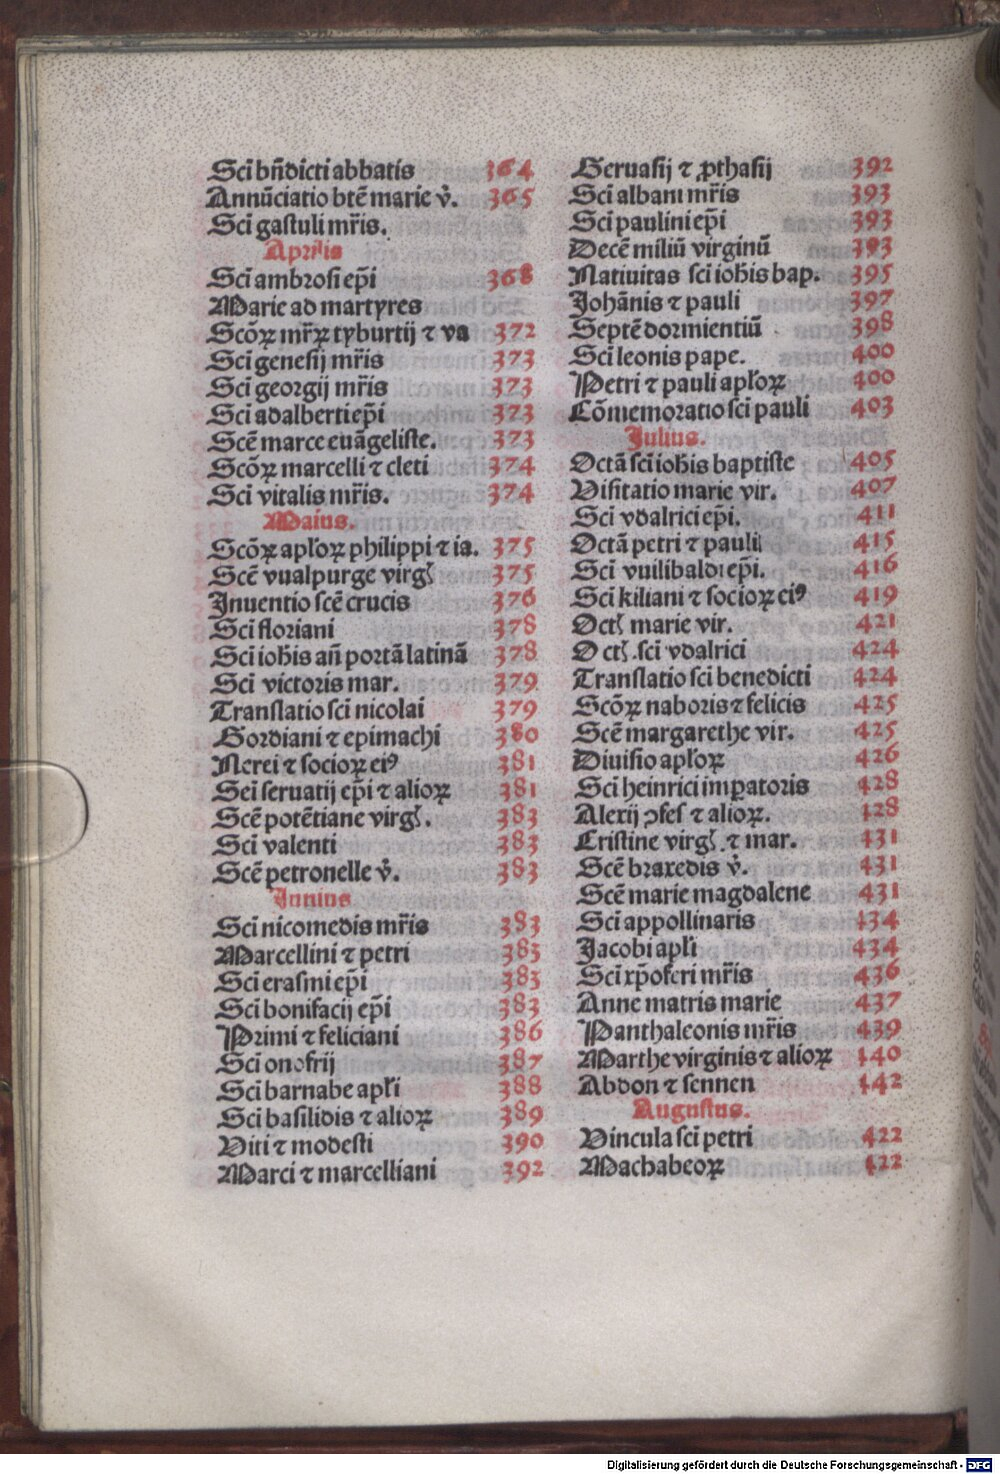 Scī bn̄dicti abbatis 364
Annūciatio btē marie v̄. 365
Scī gastuli mr̄is.
Aprilis
Scī ambrosi ep̄i 368
Marie ad martyres
Scōꝝ mr̄ꝝ tyburtij ⁊ va 372
Scī genesij mr̄is 373
Scī georgij mr̄is 373
Scī adalberti ep̄i 373
Scē marce euāgeliste. 373
Scōꝝ marcelli ⁊ cleti 374
Scī vitalis mr̄is. 374
Maius.
Scōꝝ apl̄oꝝ philippi ⁊ ia. 375
Scē vualpurge virgꝭ 375
Inuentio scē crucis 376
Scī floriani 378
Scī ioh̄is an̄ portā latinā 378
Scī victoris mar. 379
Translatio sci nicolai 379
Gordiani ⁊ epimachi 380
Nerei ⁊ socioꝝ eiꝰ 381
Sci seruatij ep̄i ⁊ alioꝝ 381
Scē potētiane virgꝭ. 383
Scī valenti 383
Scē petronelle v̄. 383
Iunius
Scī nicomedis mr̄is 383
Marcellini ⁊ petri 383
Scī erasmi ep̄i 383
Scī bonifacij ep̄i 383
Primi ⁊ feliciani 386
Scī onofrij 387
Scī barnabe apl̄i 388
Scī basilidis ⁊ alioꝝ 389
Viti ⁊ modesti 390
Marci ⁊ marcelliani 392
Geruasij ⁊ ꝓthasij 392
Scī albani mr̄is 393
Scī paulini ep̄i 393
Decē miliū virginū 393
Natiuitas sci ioh̄is bap. 395
Johānis ⁊ pauli 397
Septē dormientiū 398
Scī leonis pape. 400
Petri ⁊ pauli apl̄oꝝ 400
Cōmemoratio sci pauli 403
Julius.
Octā sci ioh̄is baptiste 405
Visitatio marie vir. 407
Scī vdalrici ep̄i. 411
Octā petri ⁊ pauli 415
Scī vuilibaldi ep̄i. 416
Scī kiliani ⁊ socioꝝ eiꝰ 419
Octꝭ marie vir. 421
Octꝭ sci vdalrici 424
Translatio sci benedicti 424
Scōꝝ naboris ⁊ felicis 425
Scē margarethe vir. 425
Diuisio apl̄oꝝ 426
Scī heinrici imꝑatoris 428
Alexij ↄfes ⁊ alioꝝ. 428
Cristine virgꝭ ⁊ mar. 431
Scē braxedis v̄. 431
Scē marie magdalene 431
Scī appollinaris 434
Jacobi apl̄i 434
Scī xp̄oferi mr̄is 436
Anne matris marie 437
Panthaleonis mr̄is 439
Marthe virginis ⁊ alioꝝ 440
Abdon ⁊ sennen 442
Augustus.
Vincula sci petri 422
Machabeoꝝ 422
Digitalisierung gefördert durch die Deutsche Forschungsgemeinschaft - DFG